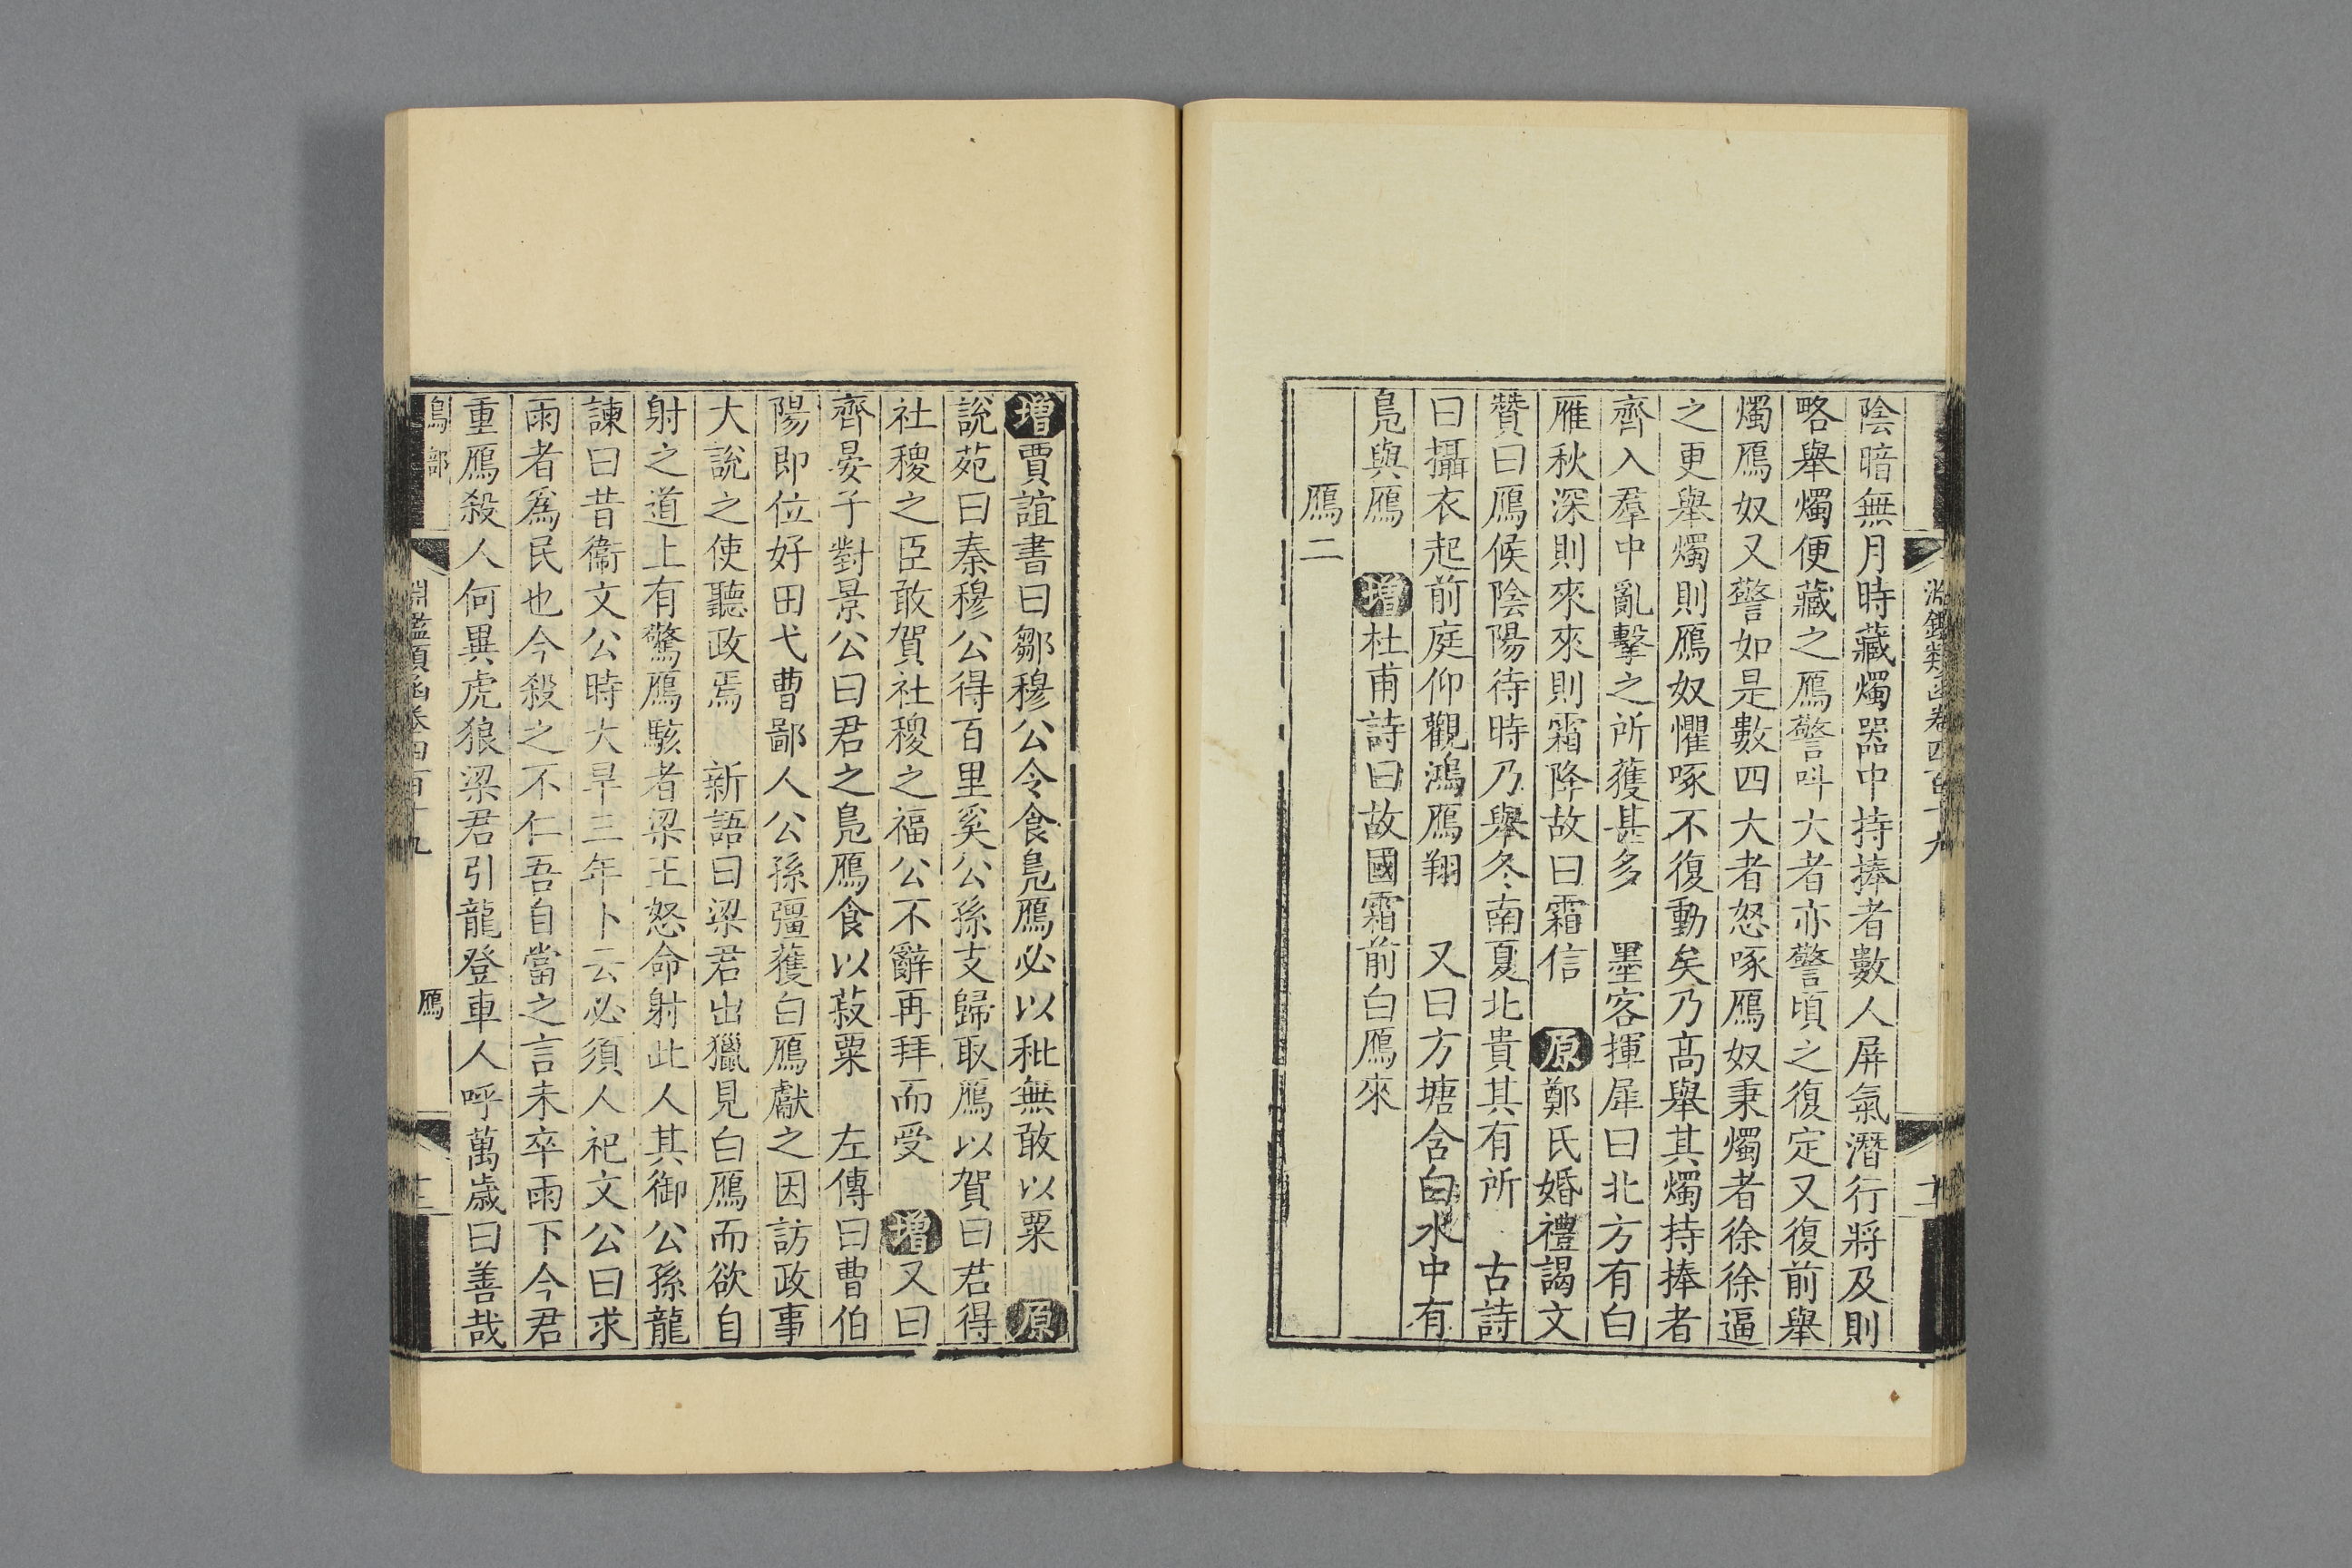 淵鑑類函卷四百十九
陰暗無月時藏燭器中持捧者數人屏氣潛行將及則
略舉燭便藏之鴈警呌大者亦警頃之復定又復前舉
燭鴈奴又警如是數四大者怒啄鴈奴秉燭者徐徐逼
之更舉燭則鴈奴懼啄不復動矣乃髙舉其燭持捧者
齊入羣中亂擊之所獲甚多 墨客揮犀曰北方有白
雁秋深則來來則霜降故曰霜信 原鄭氏婚禮謁文
贊曰鴈候陰陽待時乃舉冬南夏北貴其有所 古詩
曰攝衣起前庭仰觀鴻鴈翔 又曰方塘含白水中有
鳬與鴈 增杜甫詩曰故國霜前白鴈來
鴈二
增賈誼書曰鄒穆公令食鳬鴈必以秕無敢以粟 原
說苑曰秦穆公得百里奚公孫支歸取鴈以賀曰君得
社稷之臣敢賀社稷之福公不辭再拜而受 增又曰
齊晏子對景公曰君之鳬鴈食以菽粟 左傳曰曹伯
陽即位好田弋曹鄙人公孫彊獲白鴈獻之因訪政事
大說之使聽政焉 新語曰梁君出獵見白鴈而欲自
射之道上有驚鴈駭者梁王怒命射此人其御公孫龍
諫曰昔衞文公時大旱三年卜云必須人祀文公曰求
雨者爲民也今殺之不仁吾自當之言未卒雨下今君
重鴈殺人何異虎狼梁君引龍登車人呼萬歲曰善哉
鳥部 淵鑑類函卷四百十九 鴈 十三